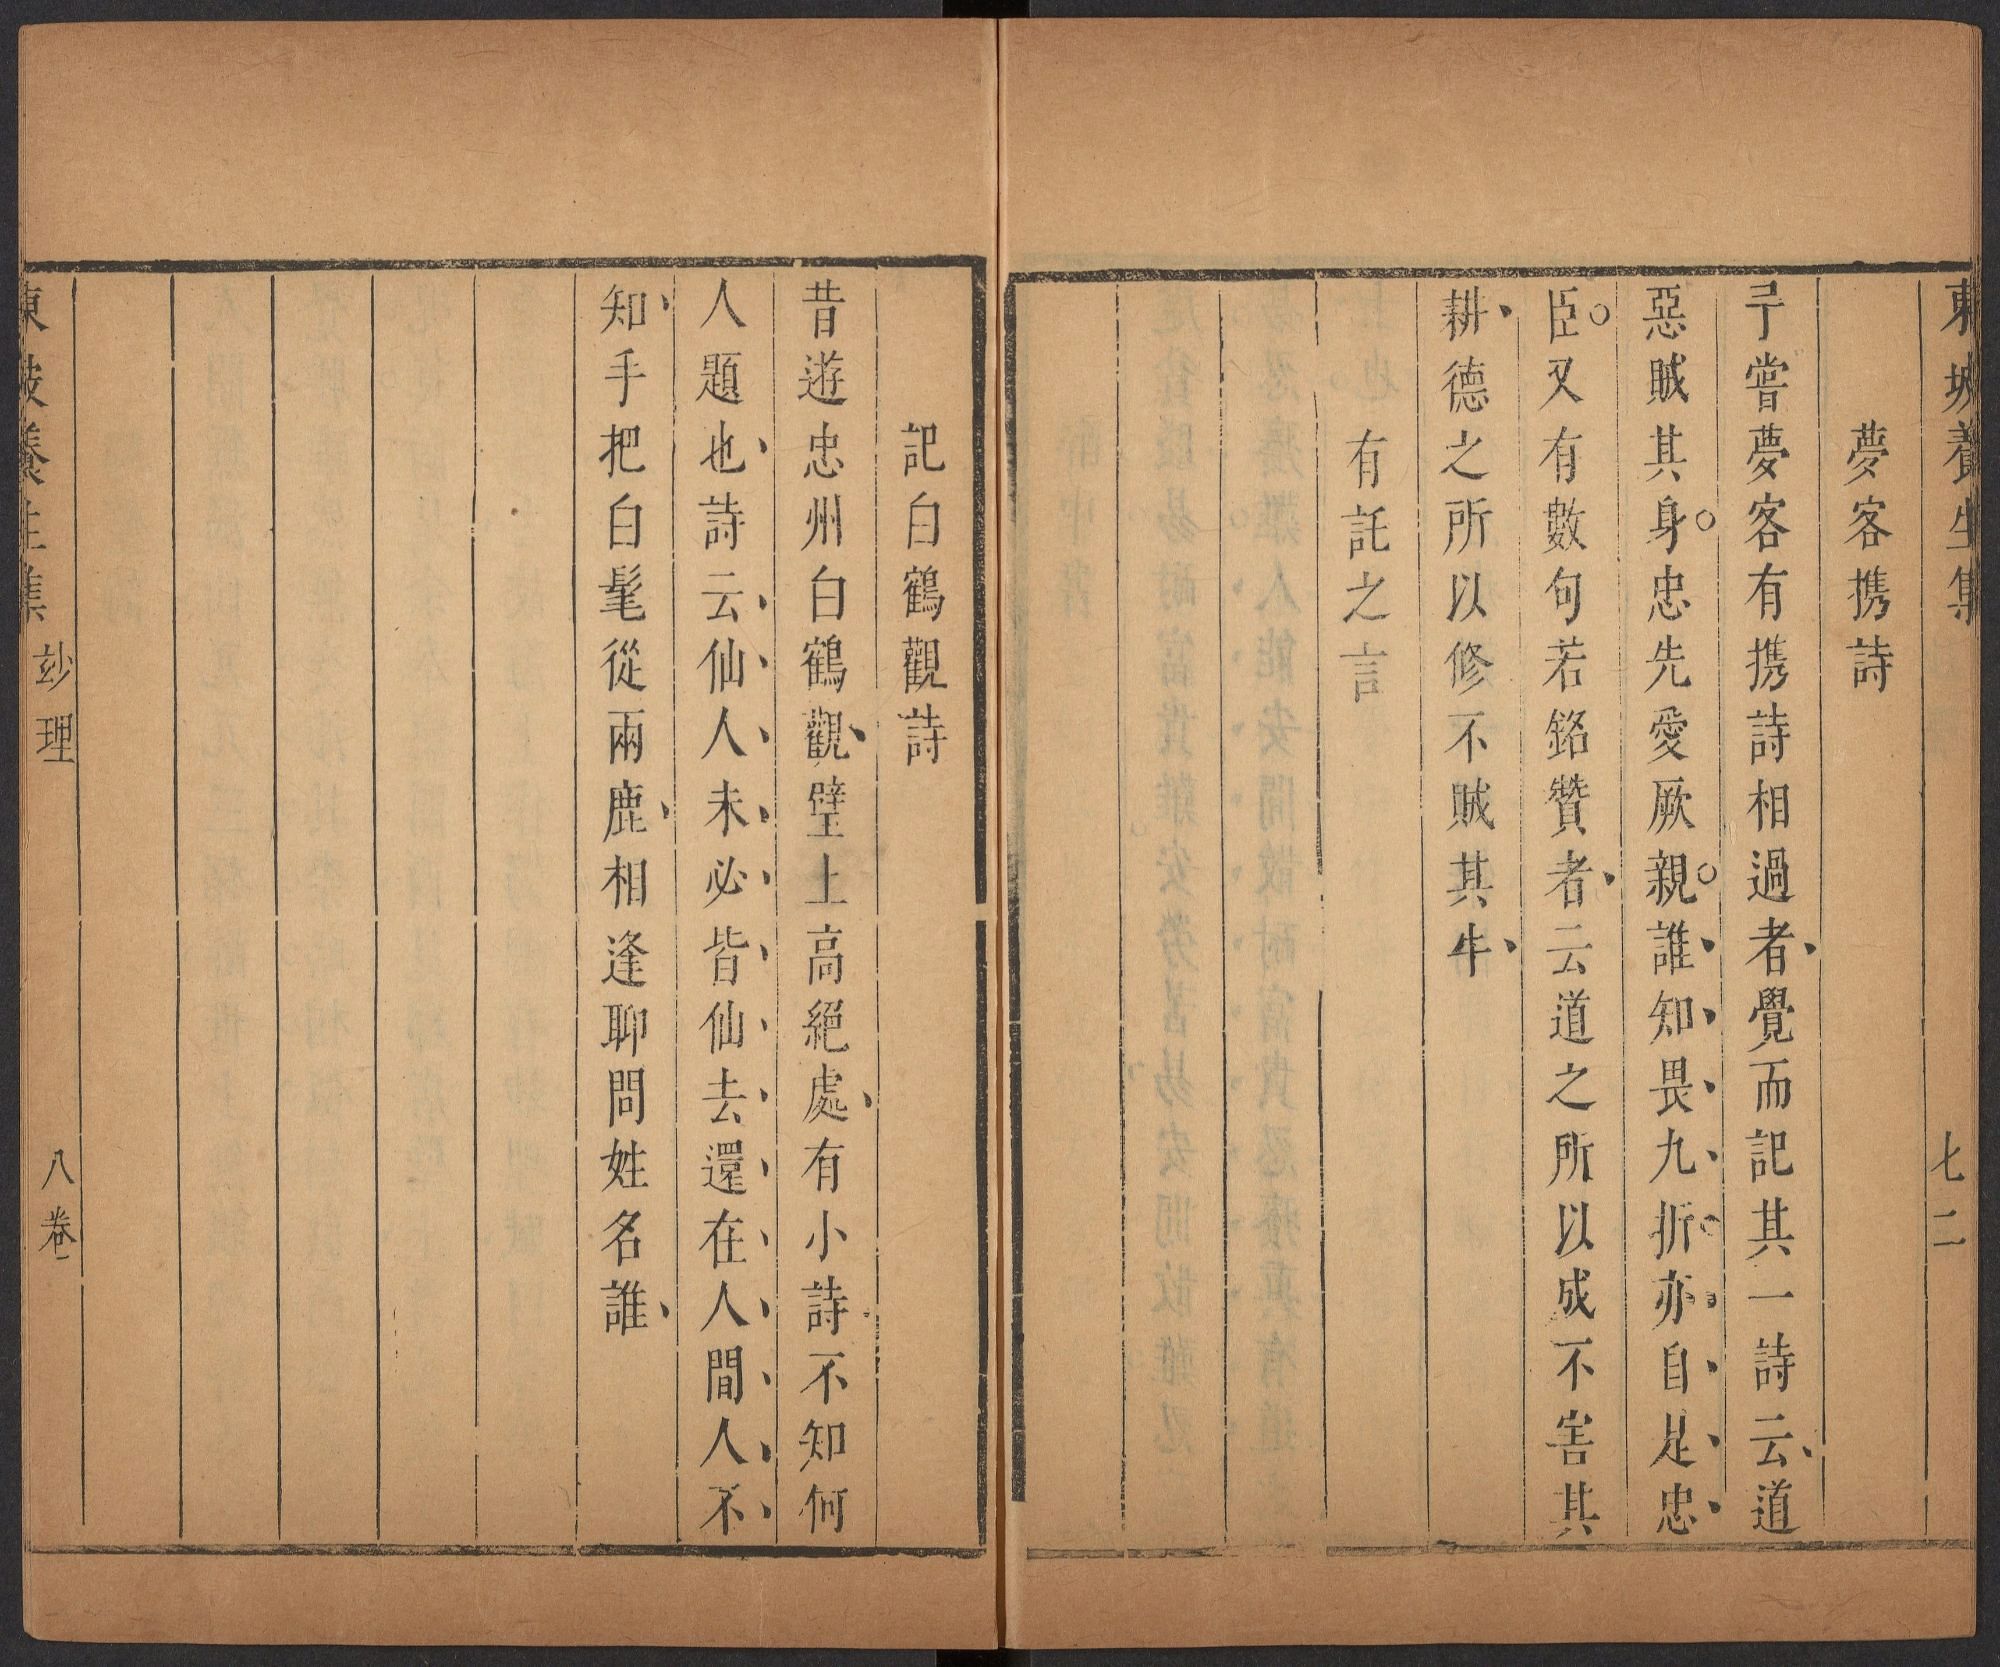 東坡養生集 七二
夢客携詩
予嘗夢客有携詩相過者覺而記其一詩云道
惡賊其身忠先愛厥親誰知畏九折亦自是忠
臣又有數句若銘贊者云道之所以成不害其
耕德之所以修不賊其牛
有託之言
記白鶴觀詩
昔遊忠州白鶴觀壁上高絕處有小詩不知何
人題也詩云仙人未必皆仙去還在人間人不
知手把白髦從兩鹿相逢聊問姓名誰
東坡養生集 玅理 八卷